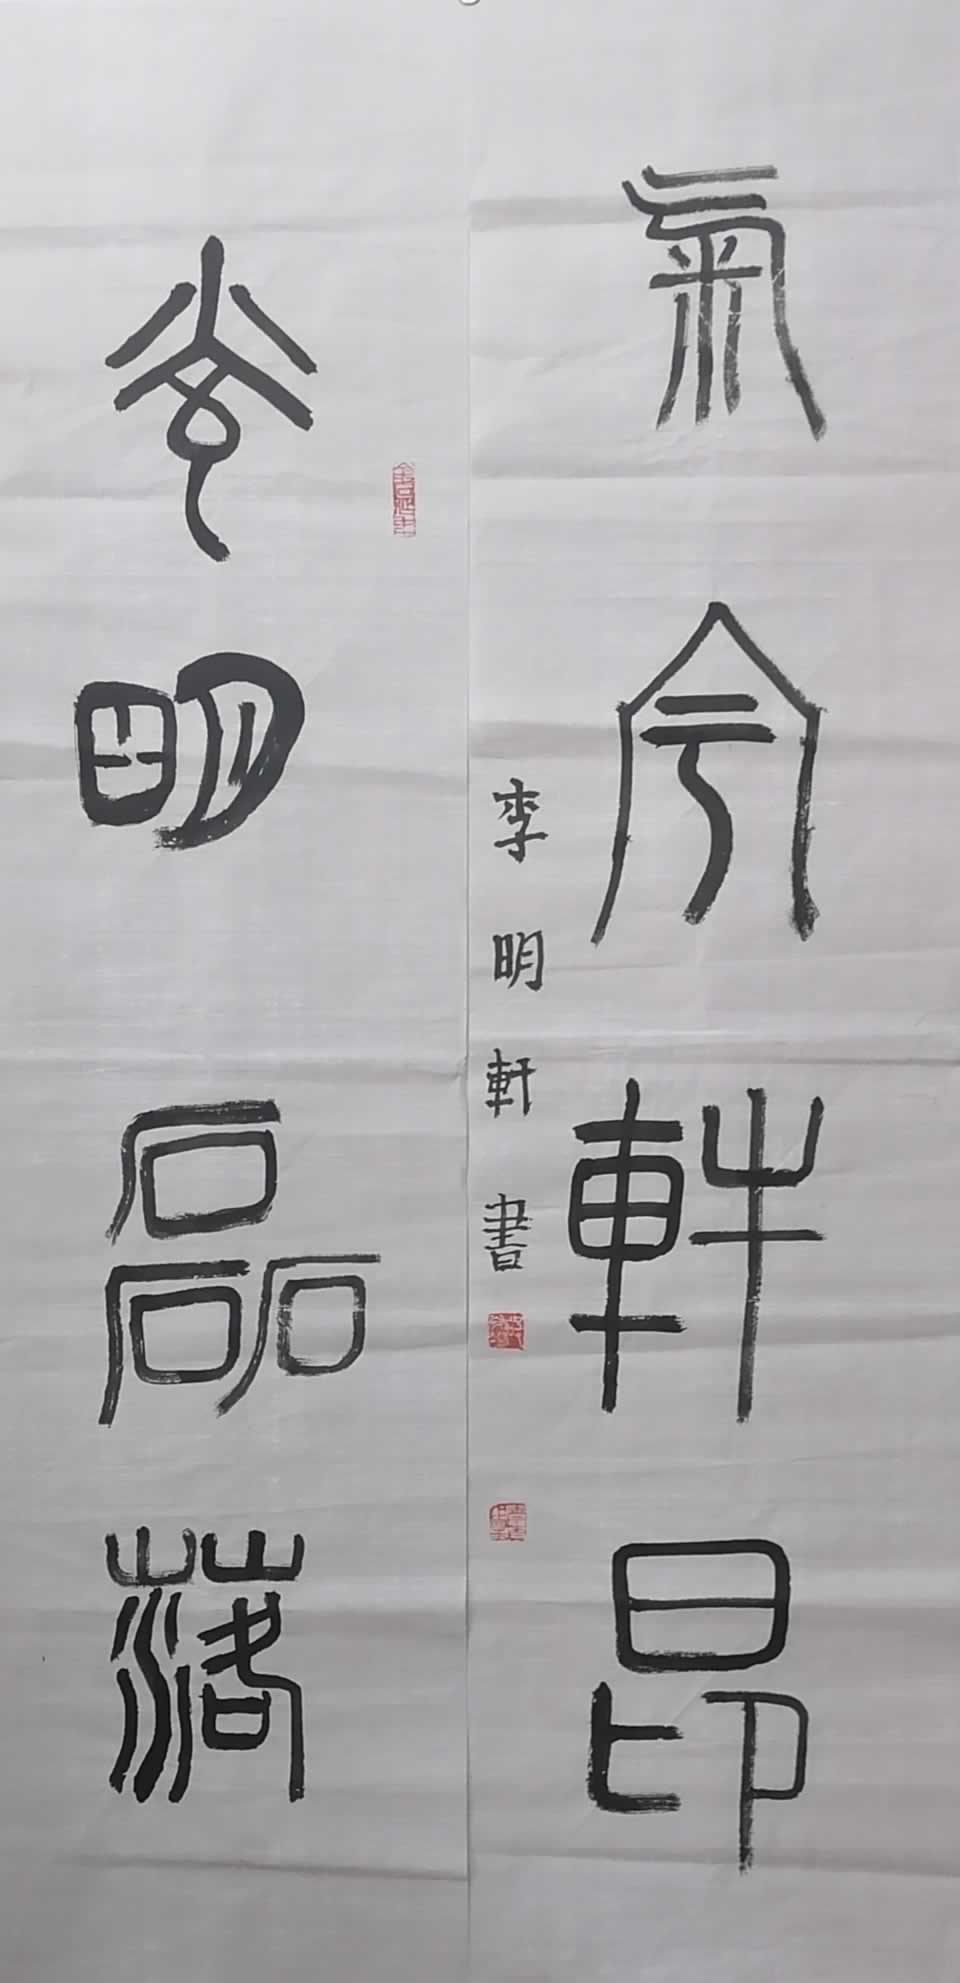 氣宇軒昂
李明軒書
光明磊落